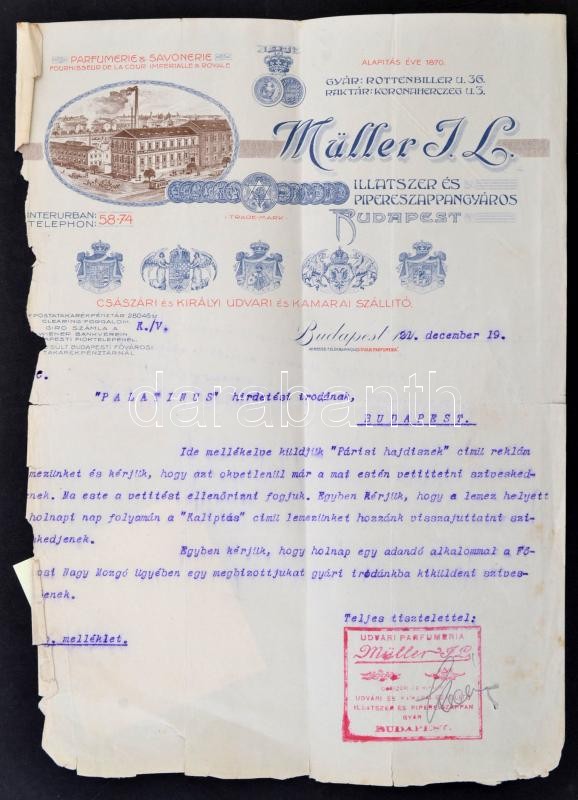 PARFUMERIE & SAVONERIE
FOURNISSEUR DE LA COUR IMPERIALE & ROYALE
ALAPITÁS ÉVE 1870.
GYÁR: ROTTENBILLER U. 36.
RAKTÁR: KORONAHERCZEG U. 3.
Müller J. L.
ILLATSZER ÉS
PIPERESZAPPANGYÁROS
BUDAPEST
TRADE-MARK
INTERURBAN:
TELEPHON: 58-74
CSÁSZÁRI ÉS KIRÁLYI UDVARI ÉS KAMARAI SZÁLLITÓ.
POSTATAKARÉKPÉNZTÁR 28045
CLEARING FORGALOM
GIRO SZÁMLA A
WIENER BANKVEREIN
APESTI FIÓKTELEPÉNÉL.
SÜLT BUDAPESTI FŐVÁROSI
TAKARÉKPÉNZTÁRNÁL
K./V.
Budapest, december 19.
c.
"PALATINUS" hirdetési irodának,
BUDAPEST.
Ide mellékelve küldjük "Párisi hajdiszek" cimü reklám
mezünket és kérjük, hogy azt okvetlenül már a mai estén vetittetni sziveskedj-
enek. Ma este a vetitést ellenőrizni fogjuk. Egyben kérjük, hogy e lemez helyett
holnapi nap folyamán a "Kaliptás" cimü lemezünket hozzánk visszajuttatni szi-
kedjenek.
Egyben kérjük, hogy holnap egy adandó alkalommal a Fő-
osi Nagy Mozgó ügyében egy megbizottjukat gyári irodánkba kiküldeni szives-
jenek.
Teljes tisztelettel:
melléklet.
UDVARI PARFUMERIA
Müller J. L.
UDVARI ÉS KAMARAI
ILLATSZER ÉS PIPERE SZAPPAN
GYÁR
BUDAPEST.
darabanth